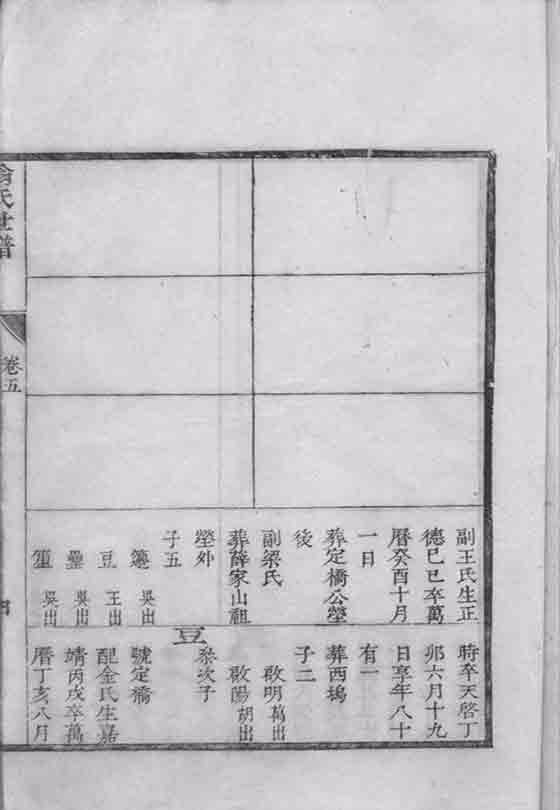 副王氏生正
德己巳卒萬
曆癸酉十月
一日
葬定橋公塋
後
副梁氏
葬薛家山祖
塋外
子五
簋 吳出
豆 王出
罍 吳出
吳出
時卒天啓丁
卯六月十九
日享年八十
有一
葬西塢
子二
啟明萬出
啟陽胡出
豆
次子
號定橋
配金氏生嘉
靖丙戌卒萬
曆丁亥八月
俞氏世譜
卷五